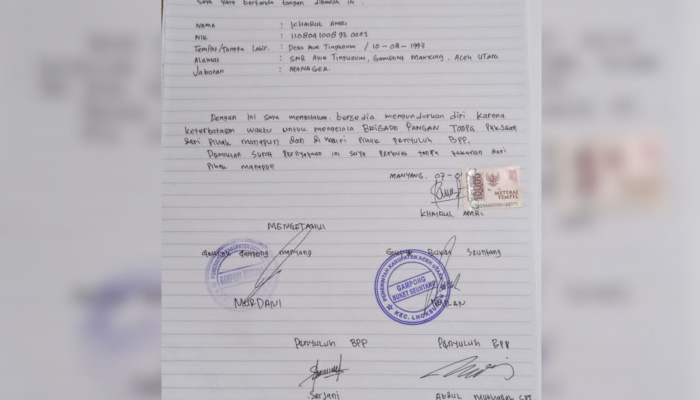 Saya yang bertanda tangan dibawah ini :
NAMA : KHAIRUL AMRI
NIK :
Tempat/Tangga Lahir : Desa Awe Tingkeum / 10-08-1993
Alamat : SMB Awe Tingkeum, Gampong Manyang, Aceh Utara
Jabatan : MANAGER
Dengan ini saya menyatakan bersedia mengundurkan diri karena
keterbatasan waktu untuk mengelola BRIGADE PANGAN TANPA PAKSAAN
dari Pihak manapun dan di Pihak Penyuluh BPP.
Demikian Surat Pernyataan ini Saya Perbuat tanpa tekanan dari
Pihak manapun
MANYANG, 07-01
10000
METERAI
TEMPEL
KHAIRUL AMRI
MENGETAHUI
Geuchik Gampong Manyang
Geuchik Buket Seuntang
PEMERINTAH KABUPATEN ACEH UTARA
GAMPONG
BUKET SEUNTANG
KEC. LHOKSUKON
MURDANI
Penyuluh BPP
Penyuluh BPP
Sarjani
Abdul Muthalab